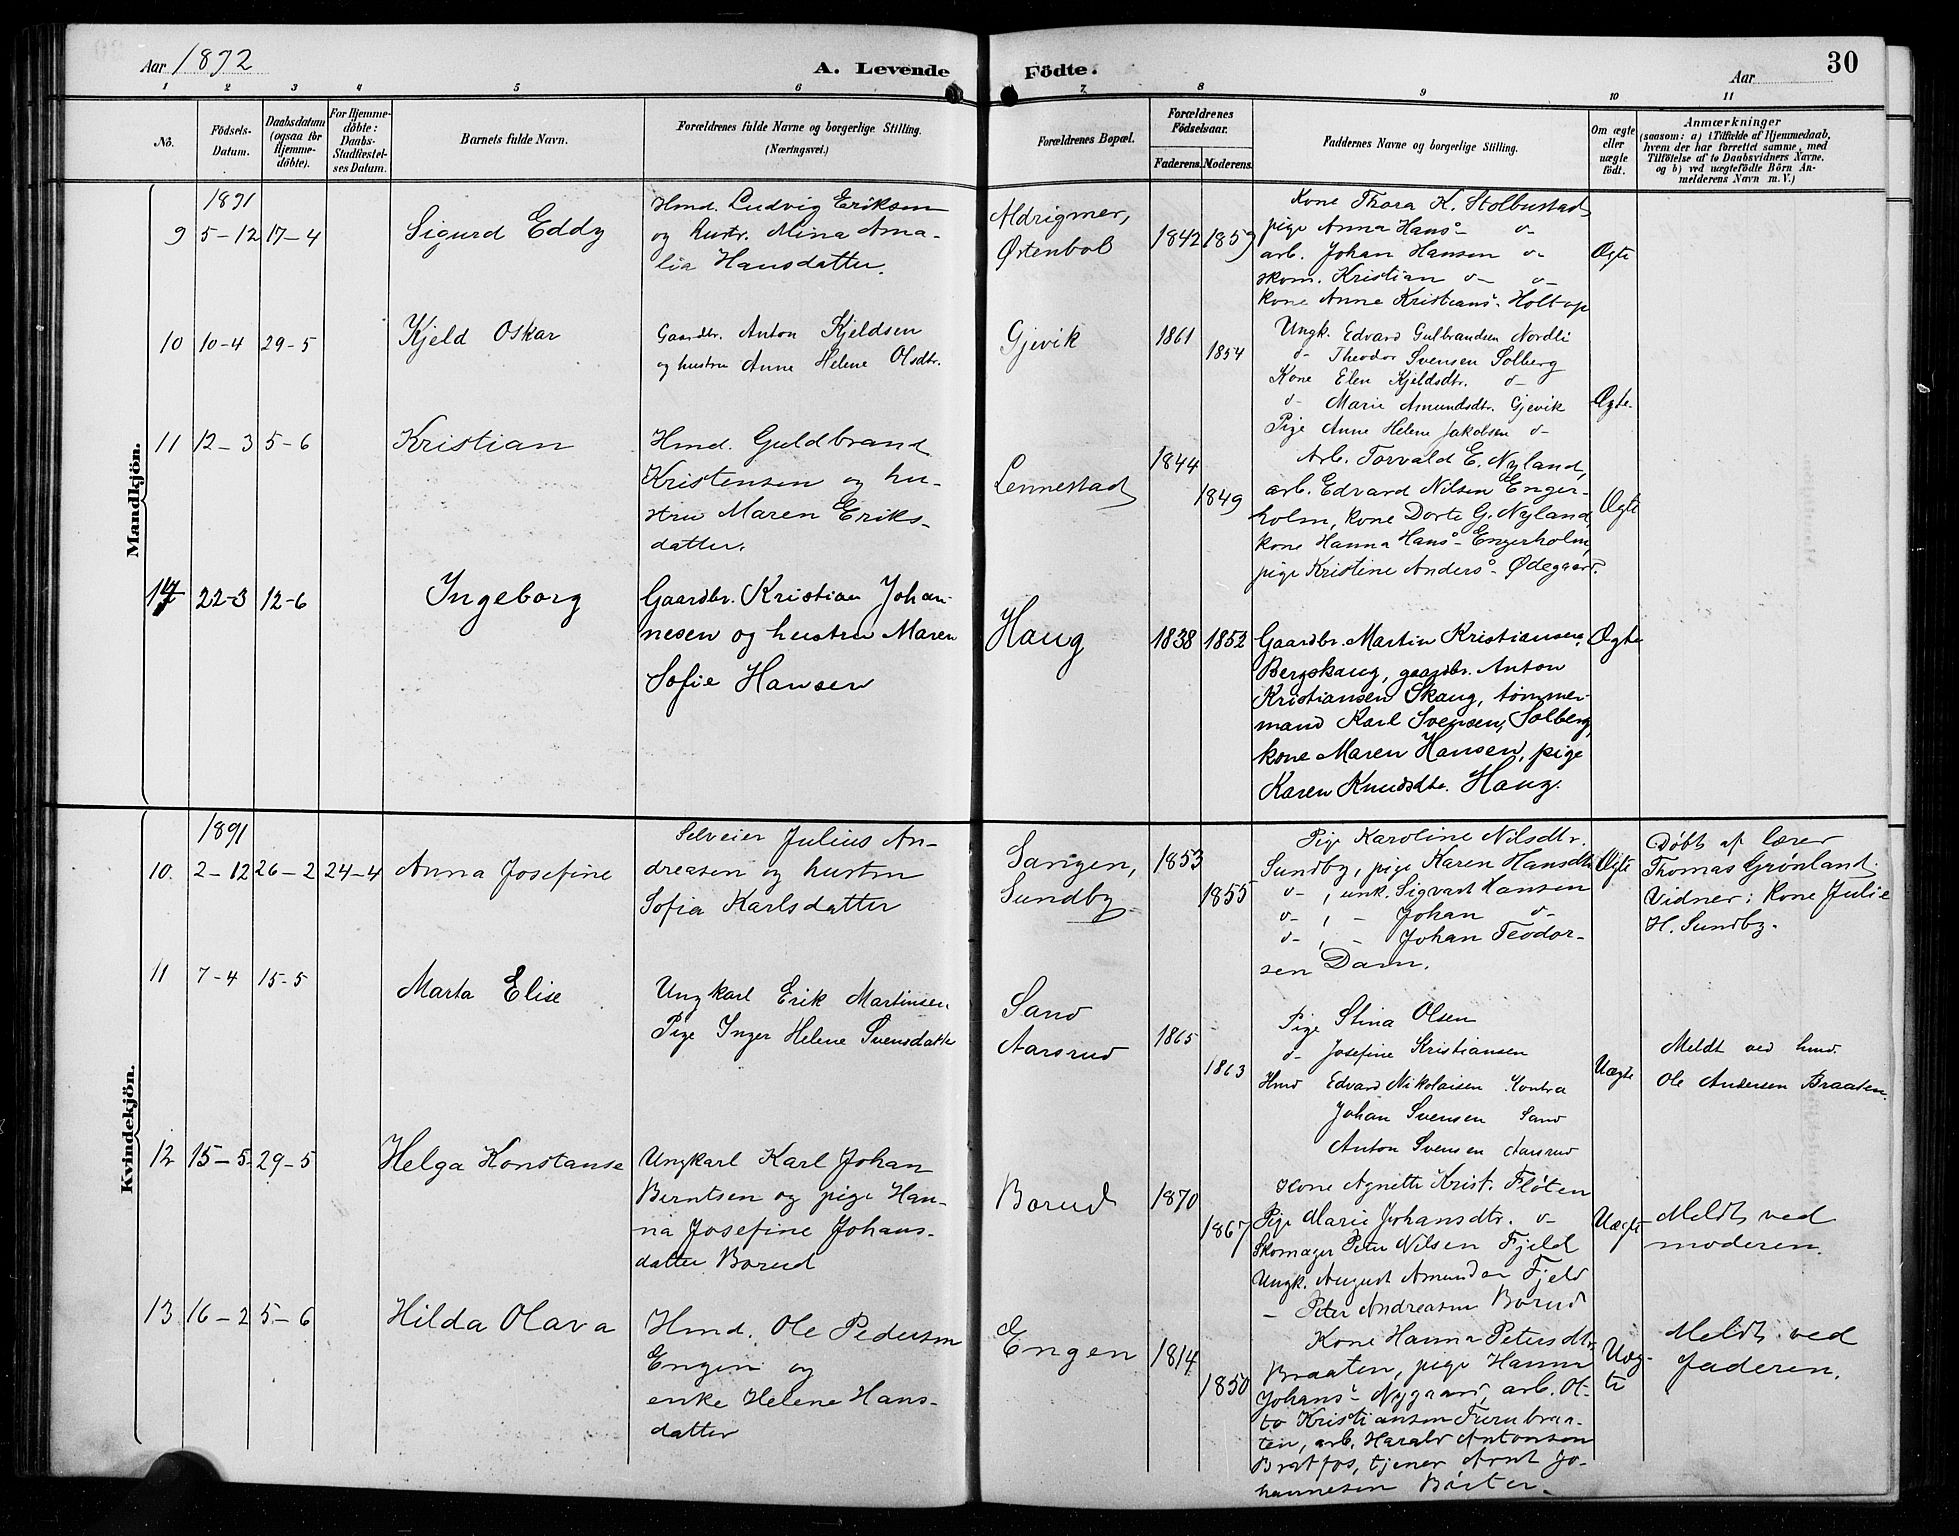 Aar 1892
A. Levende
Födte.
Aar
30
1 2 3 4 5 6 7 8 9 10 11
No.
Födsels-Datum.
Daabsdatum (ogsaa for Hjemme-döbte).
For Hjemme-döbte: Daabs-Stadfæstel-ses Datum.
Barnets fulde Navn.
Forældrenes fulde Navne og borgerlige Stilling.
(Næringsvei.)
Forældrenes Bopæl.
Forældrenes Födselsaar.
Faderens. Moderens.
Faddernes Navne og borgerlige Stilling.
Om ægte eller uægte födt.
Anmærkninger
(saasom: a) i Tilfælde af Hjemmedaab,
hvem der har forrettet samme, med
Tilföielse af to Daabsvidners Navne,
og b) ved uægtefödte Börn An-
melderens Navn m. V.)
Mandkjön.
1891
9 5-12 17-4
Sigurd Eddy
Hmd. Ludvig Eriksen
og hustr. Mina Ama-
lia Hansdatter.
Aldrigmer,
Østenbøl
1842 1859
Kone Thora K. Stolbustad
pige Anna Hans- d-
arb. Johan Hansen d-
skom. Kristian d- d-
kone Anne Kristians- Holtop
Ægte
10 10-4 29-5
Kjeld Oskar
Gaardbr. Anton Kjeldsen
og hustru Anne Helene Olsdtr.
Gjevik
1861
1854
Ungk. Edvard Gulbrandsen Nordli
d- Theodor Svensen Solberg
Kone Elen Kjeldsdtr. d-
d- Marie Amundsdtr. Gjevik
Pige Anne Helene Jakobsen d-
Ægte.
11 12-3 5-6
Kristian
Hmd. Guldbrand
Kristensen og hu-
stru Maren Eriks-
datter.
Lennestad
1844
1849
Arb. Torvald E. Nyland,
arb. Edvard Nilsen Enger-
holm, kone Dorte G. Nyland,
kone Hanna Hans- Engerholm,
pige Kristine Anders- Ødegaard.
Ægte
22-3 12-6
Ingeborg
Gaardbr. Kristian Johan-
nesen og hustru Maren
Sofie Hansen
Haug
1838 1852
Gaardbr. Martin Kristiansen,
Bergskaug, gaardbr. Anton
Kristiansen Skaug, tømmer-
mand Karl Svensen, Solberg,
kone Maren Hansen, pige
Karen Knudsdtr. Haug.
Ægte
Kvindekjön.
1891
10. 2-12 26-2 24-4
Anna Josefine
Selveier Julius An-
dreasen og hustru
Sofia Karlsdatter
Sangen,
Sundby
1853
1855
Pige Karoline Nilsdtr.
Sundby, pige Karen Hansdtr
d-, unk. Sigvart Hansen
d-, - Johan d-
d-, - Johan Teodor-
sen Dam.
Ægte
Døbt af lærer
Thomas Grønland.
Vidner: Kone Julie
H. Sundby.
11 7-4 15-5
Marta Elise
Ungkarl Erik Martinsen
Pige Inger Helene Svensdatter
Sand
Aarsrud
1865
1863
Pige Stina Olsen
d- Josefine Kristiansen
Hmd Edvard Nikolaisen Kontra
Johan Svensen Sand
Anton Svensen Aarsrud
Uægte
Meldt ved hmd.
Ole Andersen Braaten.
12 15-5 29-5
Helga Konstanse
Ungkarl Karl Johan
Berntsen og pige Han-
na Josefine Johans-
datter Borud
Borud
1870
1867
Kone Agnette Krist. Fløten
Pige Marie Johansdtr. d-
Skomager Peter Nilsen Fjeld
Ungk. August Amundsen Fjeld
- Peter Andreasen Borud
Uægte
Meldt ved
moderen.
13 16-2 5-6
Hilda Olava
Hmd. Ole Pedersen
Engen og
enke Helene Hans-
datter
Engen
1814
1850
Kone Hanna Petersdtr.
Braaten, pige Hanna
Johans- Nygaard, arb. Ot-
to Kristiansen Furubraa-
ten, arb. Harald Antonsen
Bratfos, tjener Arnt Jo-
hannesen Børter.
Uæg-
te
Meldt ved
faderen.